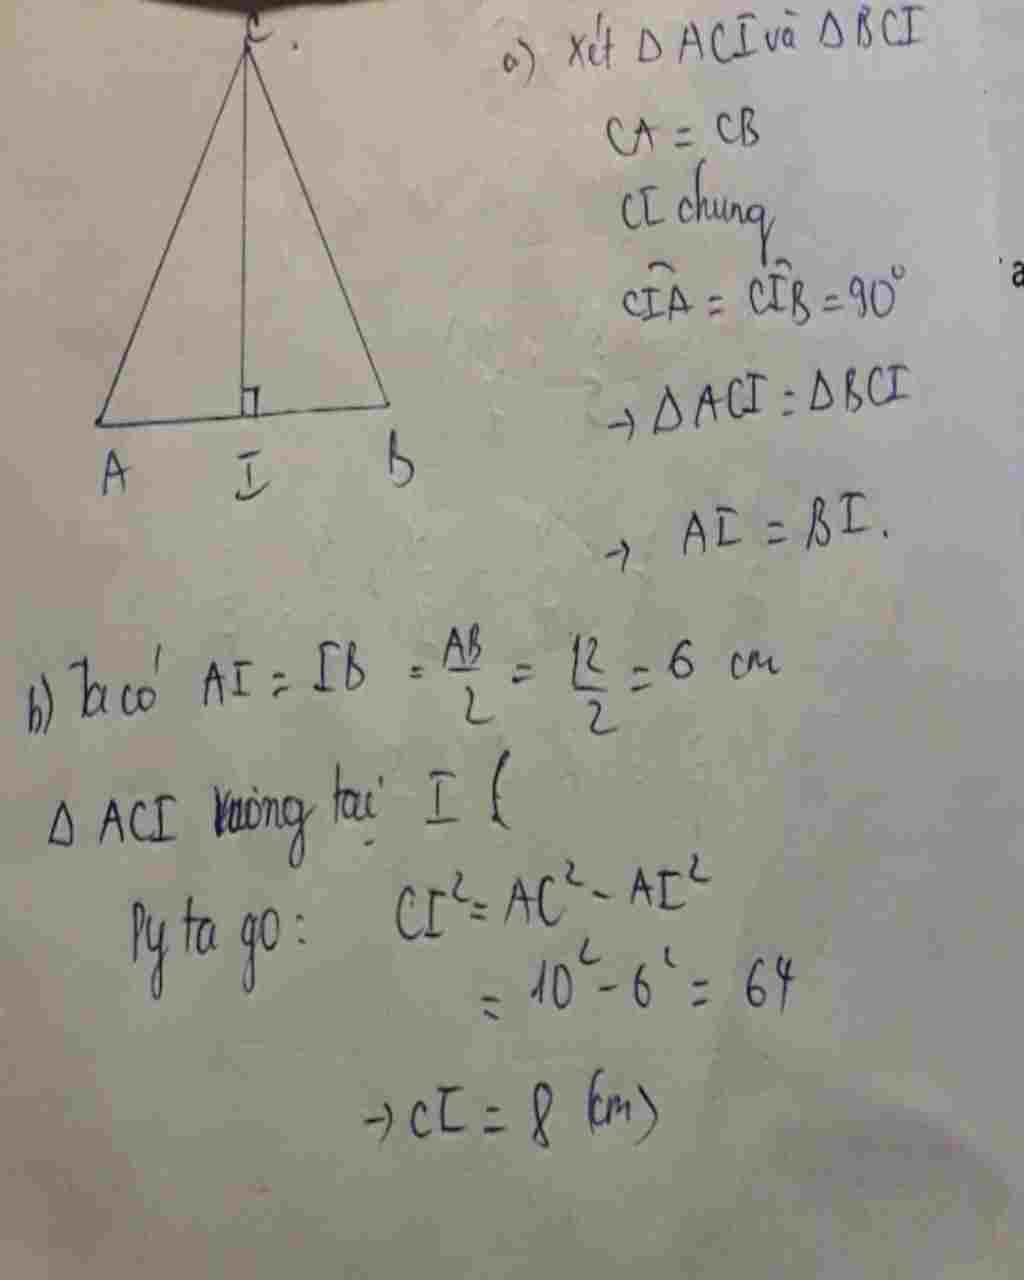 C
A
I
B
a) Xét Δ ACI và Δ BCI
CA = CB
CI chung
CIA = CIB = 90°
→ Δ ACI = Δ BCI
→ AI = BI.
a
b) Ta có AI = IB = AB/2 = 12/2 = 6 cm
Δ ACI vuông tại I (
Py ta go: CI² = AC² - AI²
= 10² - 6² = 64
→ CI = 8 (cm)